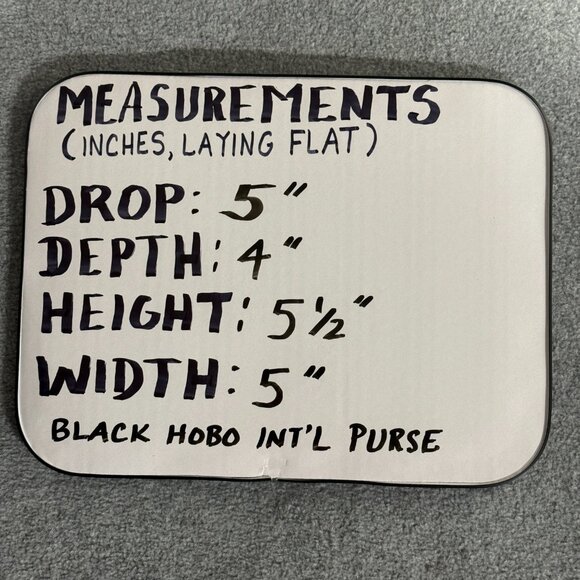 MEASUREMENTS
(INCHES, LAYING FLAT)
DROP: 5"
DEPTH: 4"
HEIGHT: 5½"
WIDTH: 5"
BLACK HOBO INT'L PURSE